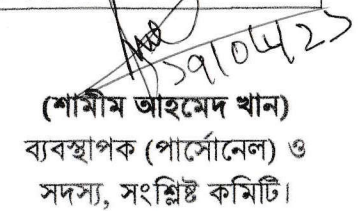 (শামীম আহমেদ খান)
ব্যবস্থাপক (পার্সোনেল) ও
সদস্য, সংশ্লিষ্ট কমিটি।